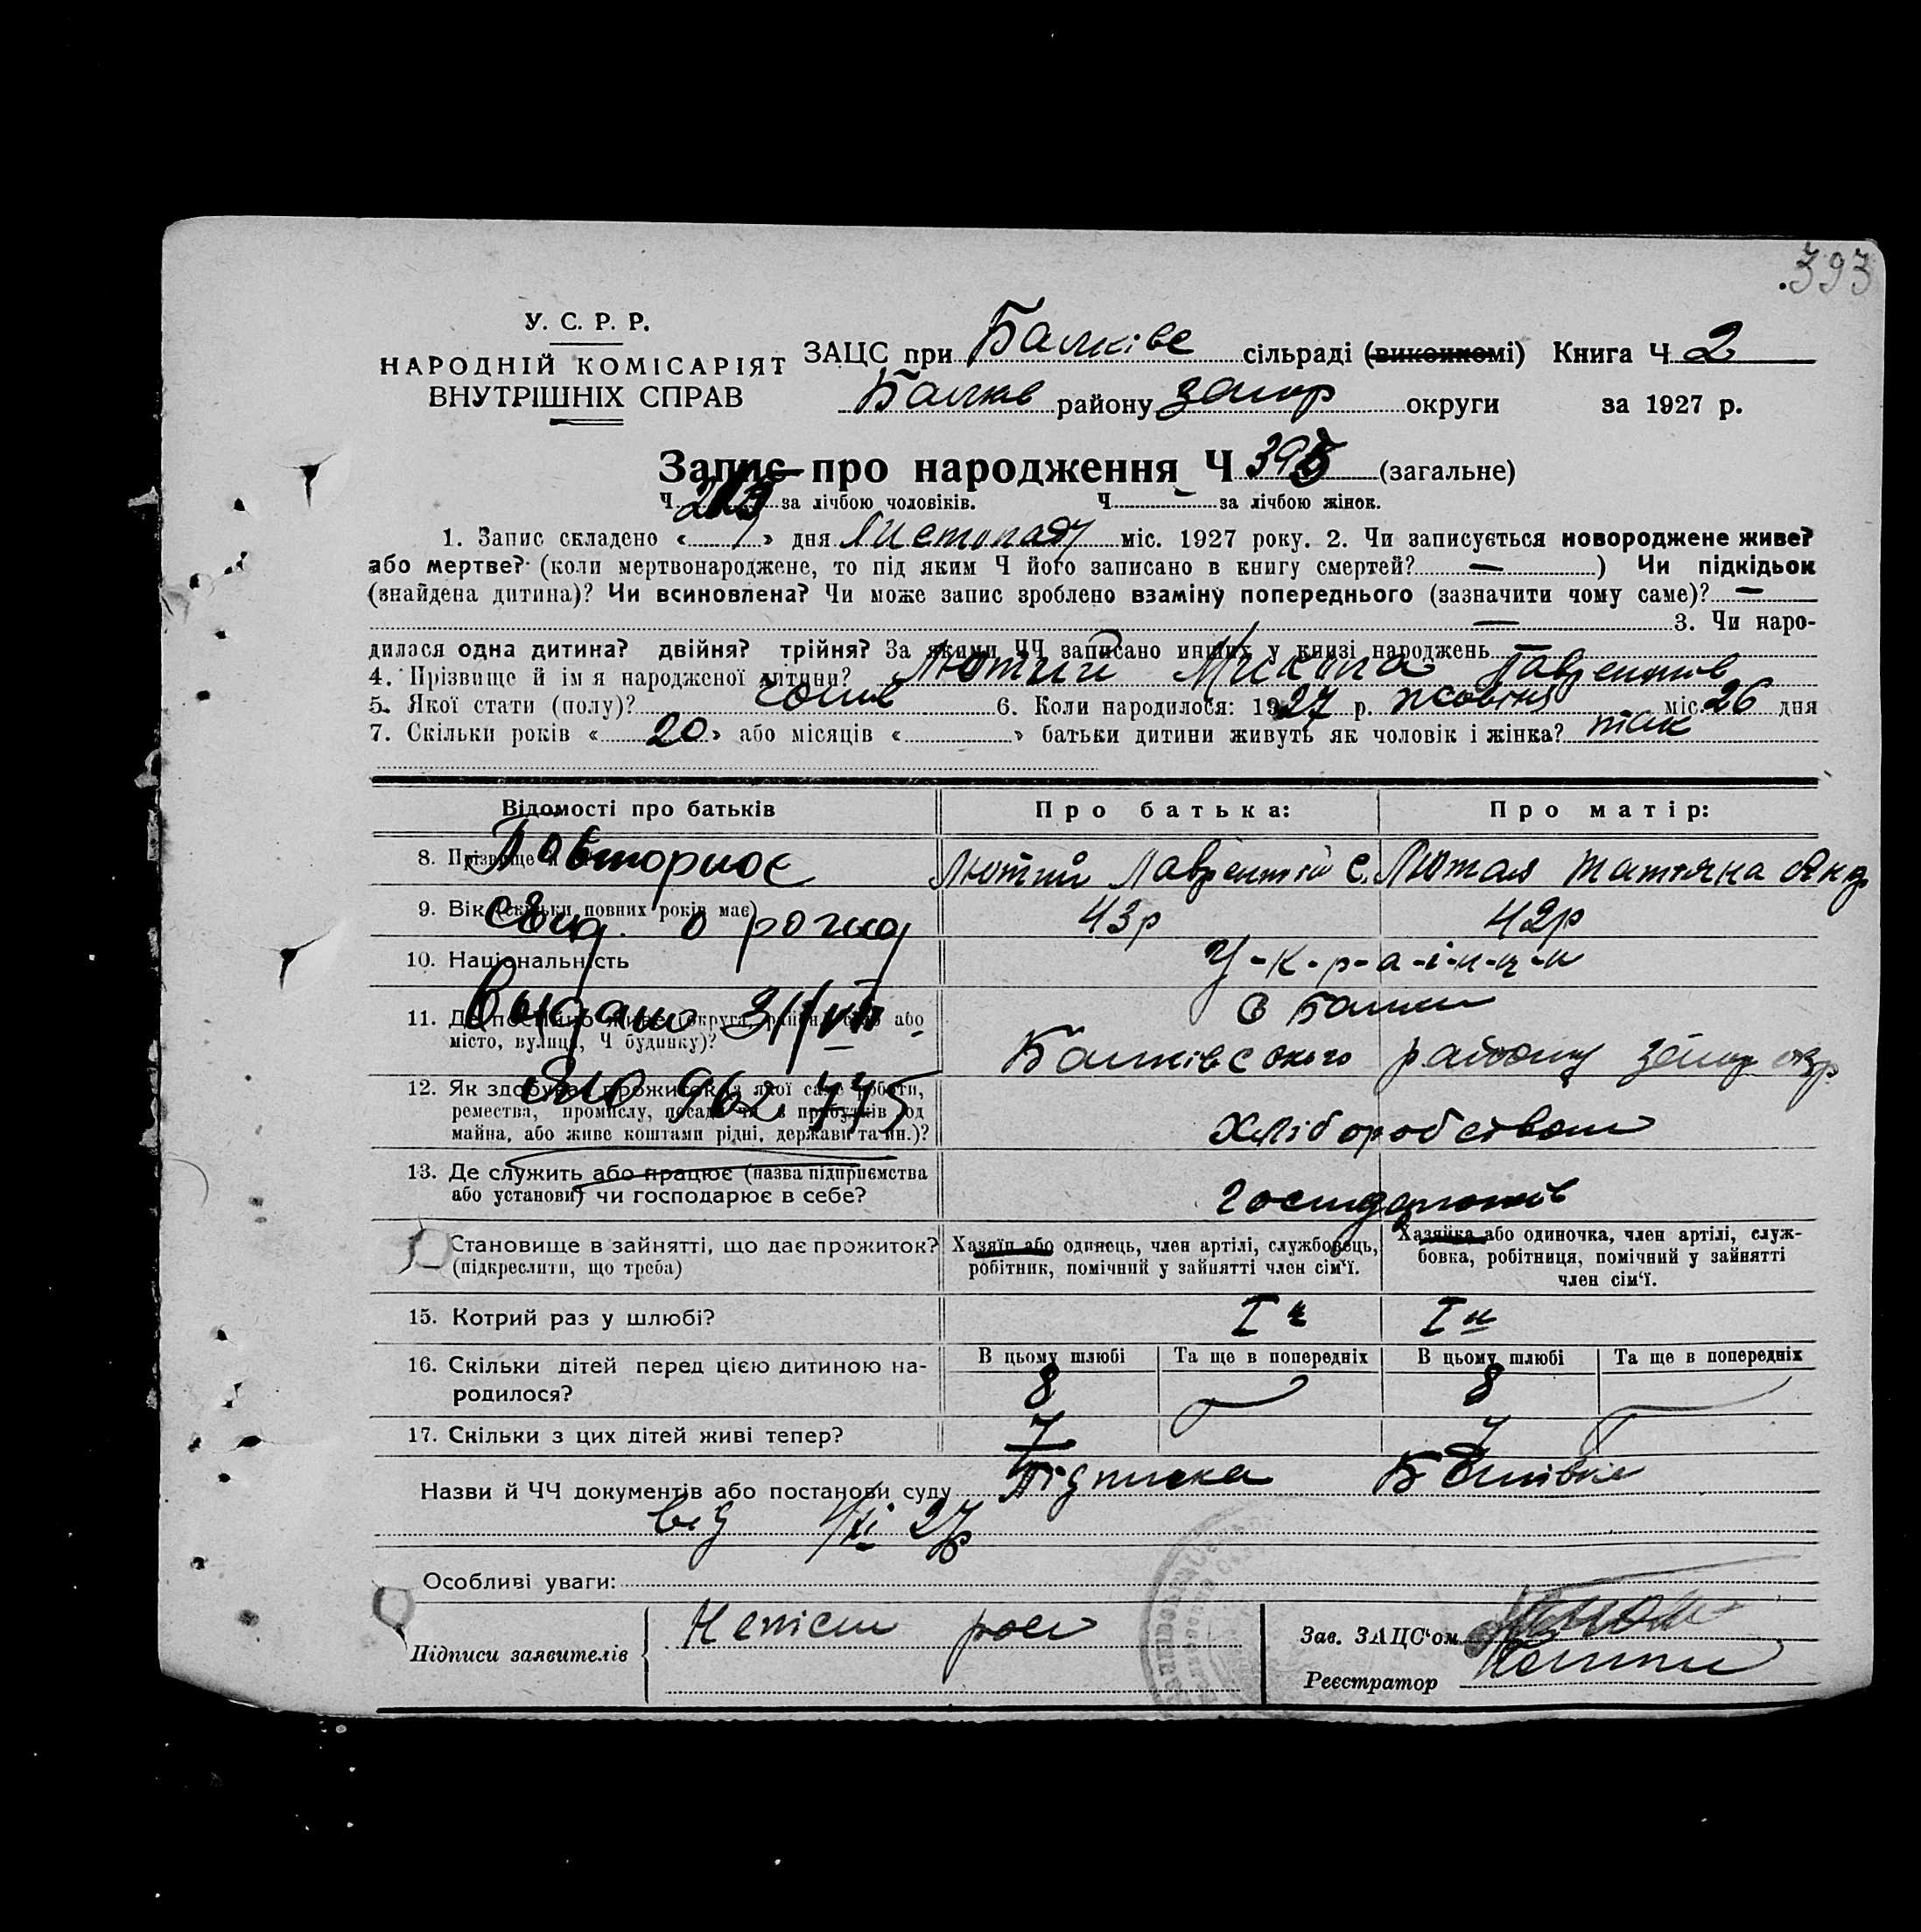 393
У. С. Р. Р.
НАРОДНІЙ КОМІСАРІЯТ
ВНУТРІШНІХ СПРАВ
ЗАЦС при Балківс сільраді (виконкомі) Книга Ч 2
Балків району Запор округи за 1927 р.
Запис про народження Ч 395 (загальне)
Ч за лічбою чоловіків. Ч - за лічбою жінок.
1. Запис складено « 1 » дня Листопаду міс. 1927 року. 2. Чи записується новороджене живе?
або мертве? (коли мертвонароджене, то під яким Ч його записано в книгу смертей? — ) Чи підкідьок
(знайдена дитина)? Чи всиновлена? Чи може запис зроблено взаміну попереднього (зазначити чому саме)? —
— 3. Чи наро-
дилася одна дитина? двійня? трійня? За якими ЧЧ записано инших у книзі народжень —
4. Прізвище й ім я народженої дитини? Лютий Микола Лаврентів
5. Якої стати (полу)? чолов 6. Коли народилося: 1927 р. жовтня міс. 26 дня
7. Скільки років « 20 » або місяців « » батьки дитини живуть як чоловік і жінка? так
Відомості про батьків Про батька: Про матір:
8. Прізвище Лютий Лаврентій С. Лютая Татяна Анд
Повторное
9. Вік (скільки повних років має) 43р 42р
свид. о рожд
10. Національність У-к-р-а-ї-н-ц-и
Выдано 31/VII
11. Де постійно живе (округа, район, село або С Балки
місто, вулиця, Ч будинку)? Балківського району Запор окр
12. Як здобуває прожиток: з якої саме роботи,
ремества, промислу, посади чи з прибутків од Хліборобством
майна, або живе коштами рідні, держави та ин.)?
962445
13. Де служить або працює (назва підприємства
або установи) чи господарює в себе?
Становище в зайнятті, що дає прожиток? Хазяїн або одинець, член артілі, службовець, Хазяйка або одиночка, член артілі, служ-
(підкреслити, що треба) робітник, помічний у зайнятті член сім‘ї. бовка, робітниця, помічний у зайнятті
член сім‘ї.
15. Котрий раз у шлюбі? I й I й
16. Скільки дітей перед цією дитиною на- В цьому шлюбі Та ще в попередніх В цьому шлюбі Та ще в попередніх
родилося? 8 8
17. Скільки з цих дітей живі тепер? 7 7
Назви й ЧЧ документів або постанови суду Підписка
від 1/XI 27р
Особливі уваги:
Підписи заявителів
Зав. ЗАЦС‘ом
Реєстратор